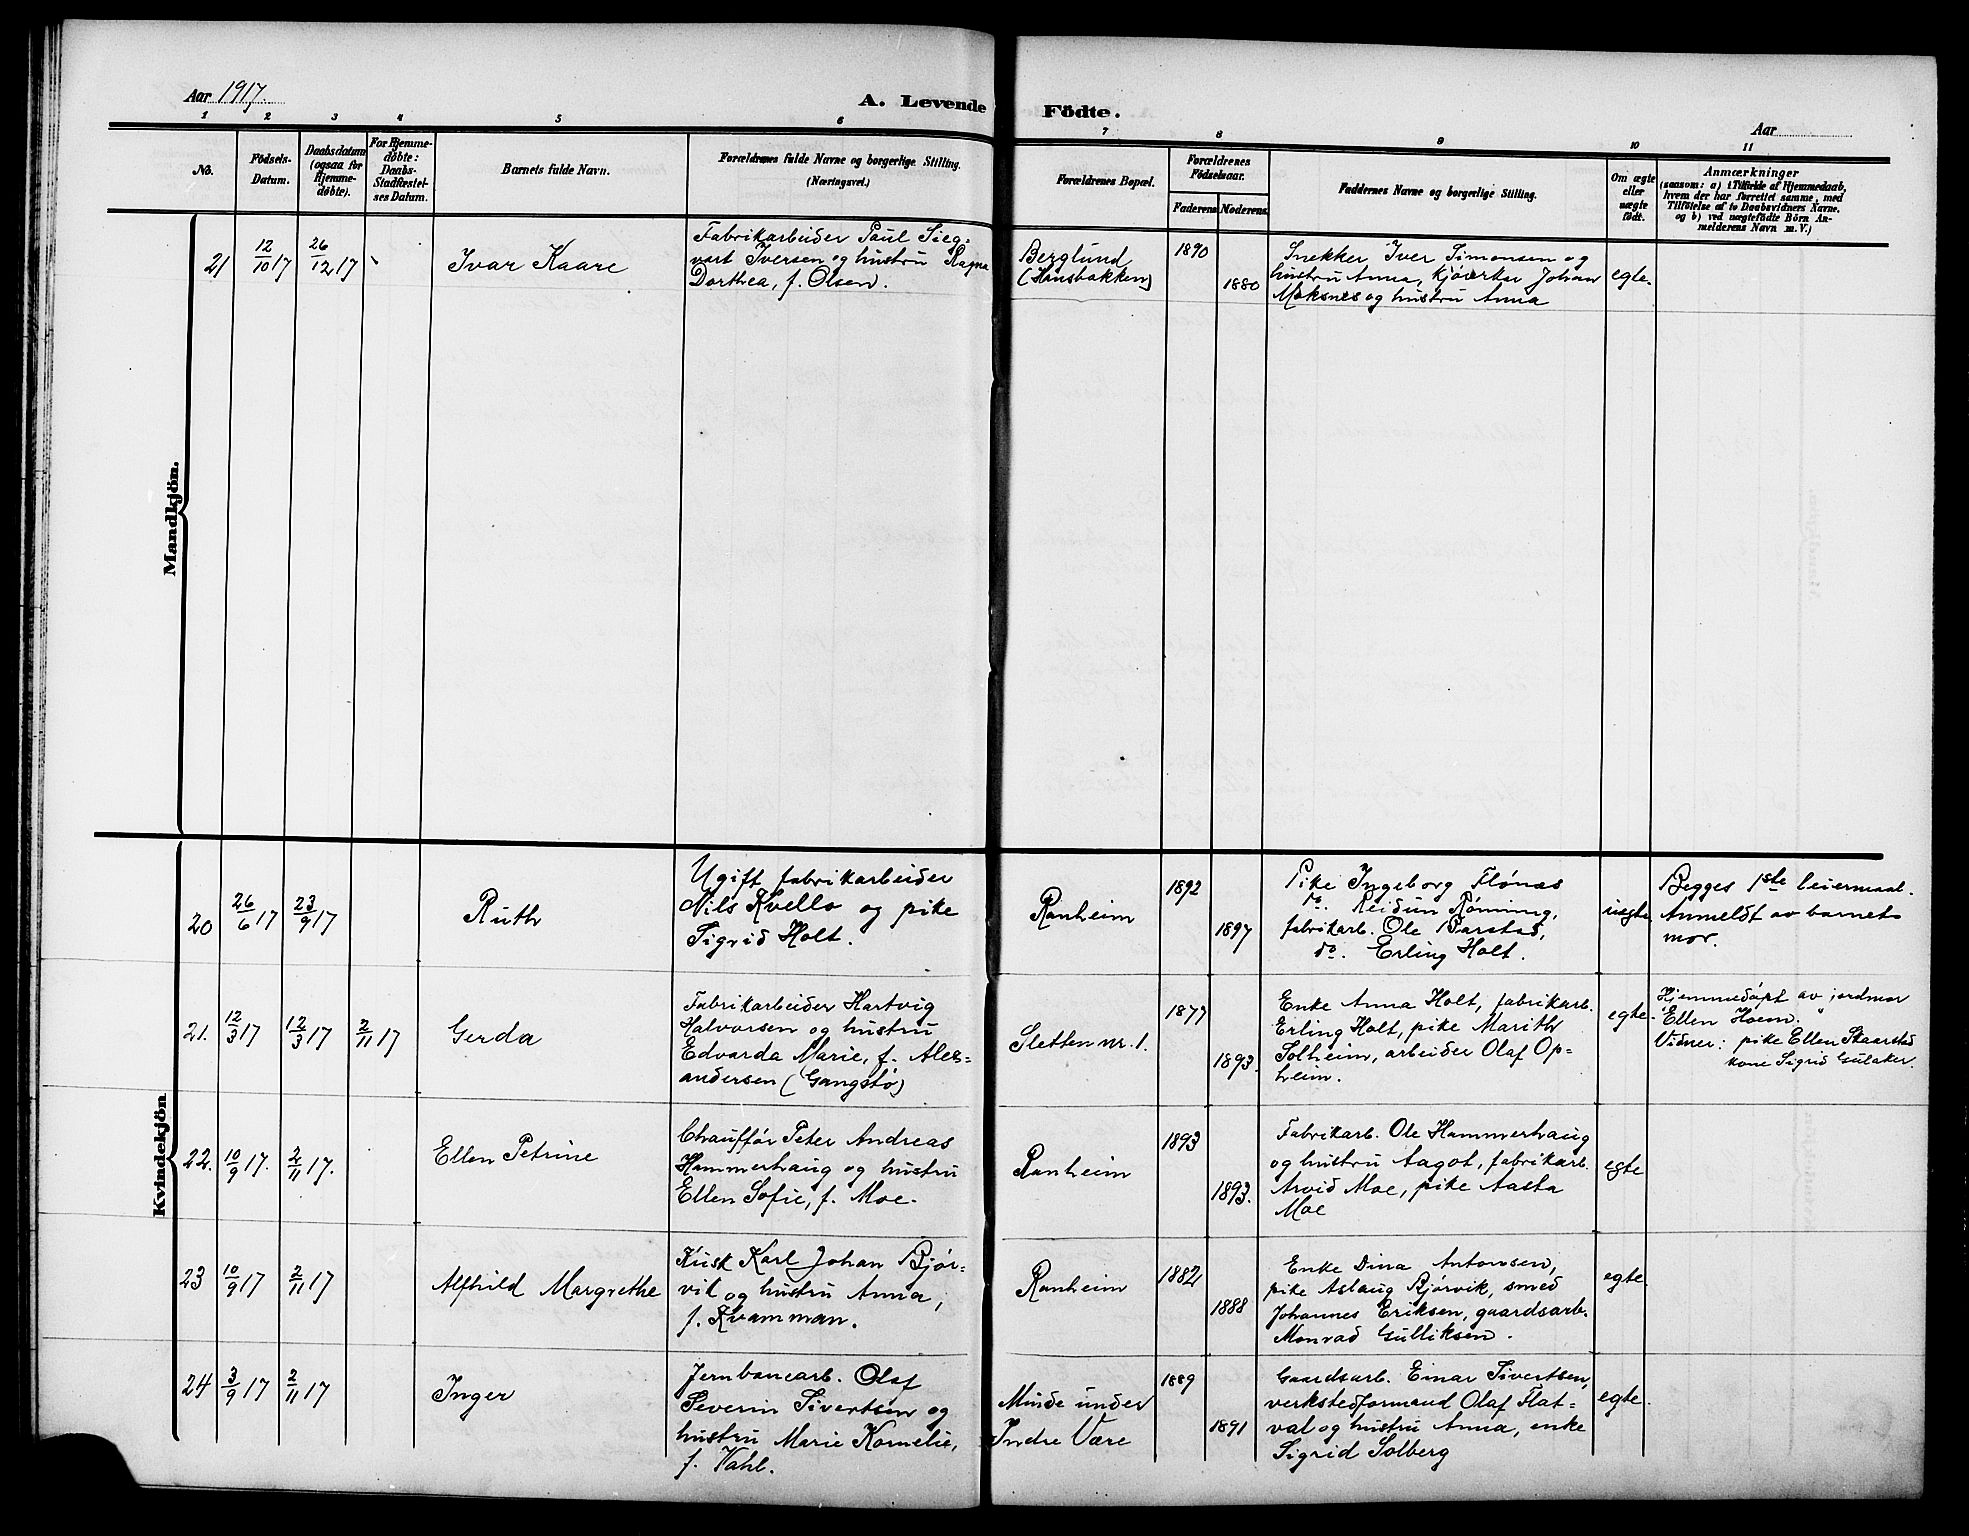 Aar 1917.
A. Levende Födte.
Aar
1 2 3 4 5 6 7 8 9 10 11
No.
Födsels-
Datum.
Daabsdatum
(ogsaa for
Hjemme-
döbte).
For Hjemme-
döbte:
Daabs-
Stadfæstel-
ses Datum.
Barnets fulde Navn.
Forældrenes fulde Navne og borgerlige Stilling.
(Næringsvei.)
Forældrenes Bopæl.
Forældrenes
Födselsaar.
Faderens Moderens
Faddernes Navne og borgerlige Stilling.
Om ægte
eller
uægte
født.
Anmærkninger
(saasom: a) i Tilfælde af Hjemmedaab,
hvem der har forrettet samme, med
Tilföielse af to Daabsvidners Navne.
og b) ved uægtefødte Börn An-
melderens Navn m. V.)
Mandkjön.
21 12/10 17 26/12 17 Ivar Kaare
Fabrikarbeider Paul Sieg-
vart Iversen og hustru Ragna
Dorthea, f. Olsen.
Berglund
(Hansbakken)
1890
1880
Snekker Iver Simonsen og
hustru Anna, kjører Johan
Moksnes og hustru Anna
egte.
Kvindekjön
20 26/6 17 23/9 17 Ruth
Ugift fabrikarbeider
Nils Kvello og pike
Sigrid Holt.
Ranheim
1892
1897
Pike Ingeborg Flønæs
do. Reidun Rønning,
fabrikarb. Ole Barstad,
do. Erling Holt.
uegte
Begges 1ste leiermaal.
Anmeldt av barnets
mor.
21. 12/3 17 12/3 17 2/11 17 Gerda
Fabrikarbeider Hartvig
Halvorsen og hustru
Edvarda Marie, f. Alex-
andersen (Gangstø)
Sletten nr. 1.
1877
1893.
Enke Anna Holt, fabrikarb.
Erling Holt, pike Marith
Solheim, arbeider Olaf Op-
heim.
egte.
Hjemmedøpt av jordmor
Ellen Hoem.
Vidner: pike Ellen Skaarstad
kone Sigrid Gulaker.
22. 10/9 17. 2/11 17. Ellen Petrine
Chauffør Peter Andreas
Hammerhaug og hustru
Ellen Sofie, f. Moe.
Ranheim
1893
1893.
Fabrikarb. Ole Hammerhaug
og hustru Aagot, fabrikarb.
Arvid Moe, pike Aasta
Moe
egte
23 10/9 17 2/11 17 Alfhild Margrethe
Kusk Karl Johan Bjør-
vik og hustru Anna,
f. Kvamman.
Ranheim
1882
1888
Enke Dina Antonsen,
pike Aslaug Bjørvik, smed
Johannes Eriksen, gaardsarb.
Monrad Gulliksen.
egte
24 3/9 17 2/11 17 Inger
Jernbanearb. Olaf
Severin Sivertsen og
hustru Marie Kornelie,
f. Vahl.
Minde under
Indre Være
1889
1891
Gaardsarb. Einar Sivertsen,
verkstedformand Olaf Flat-
val og hustru Anna, enke
Sigrid Solberg
egte.